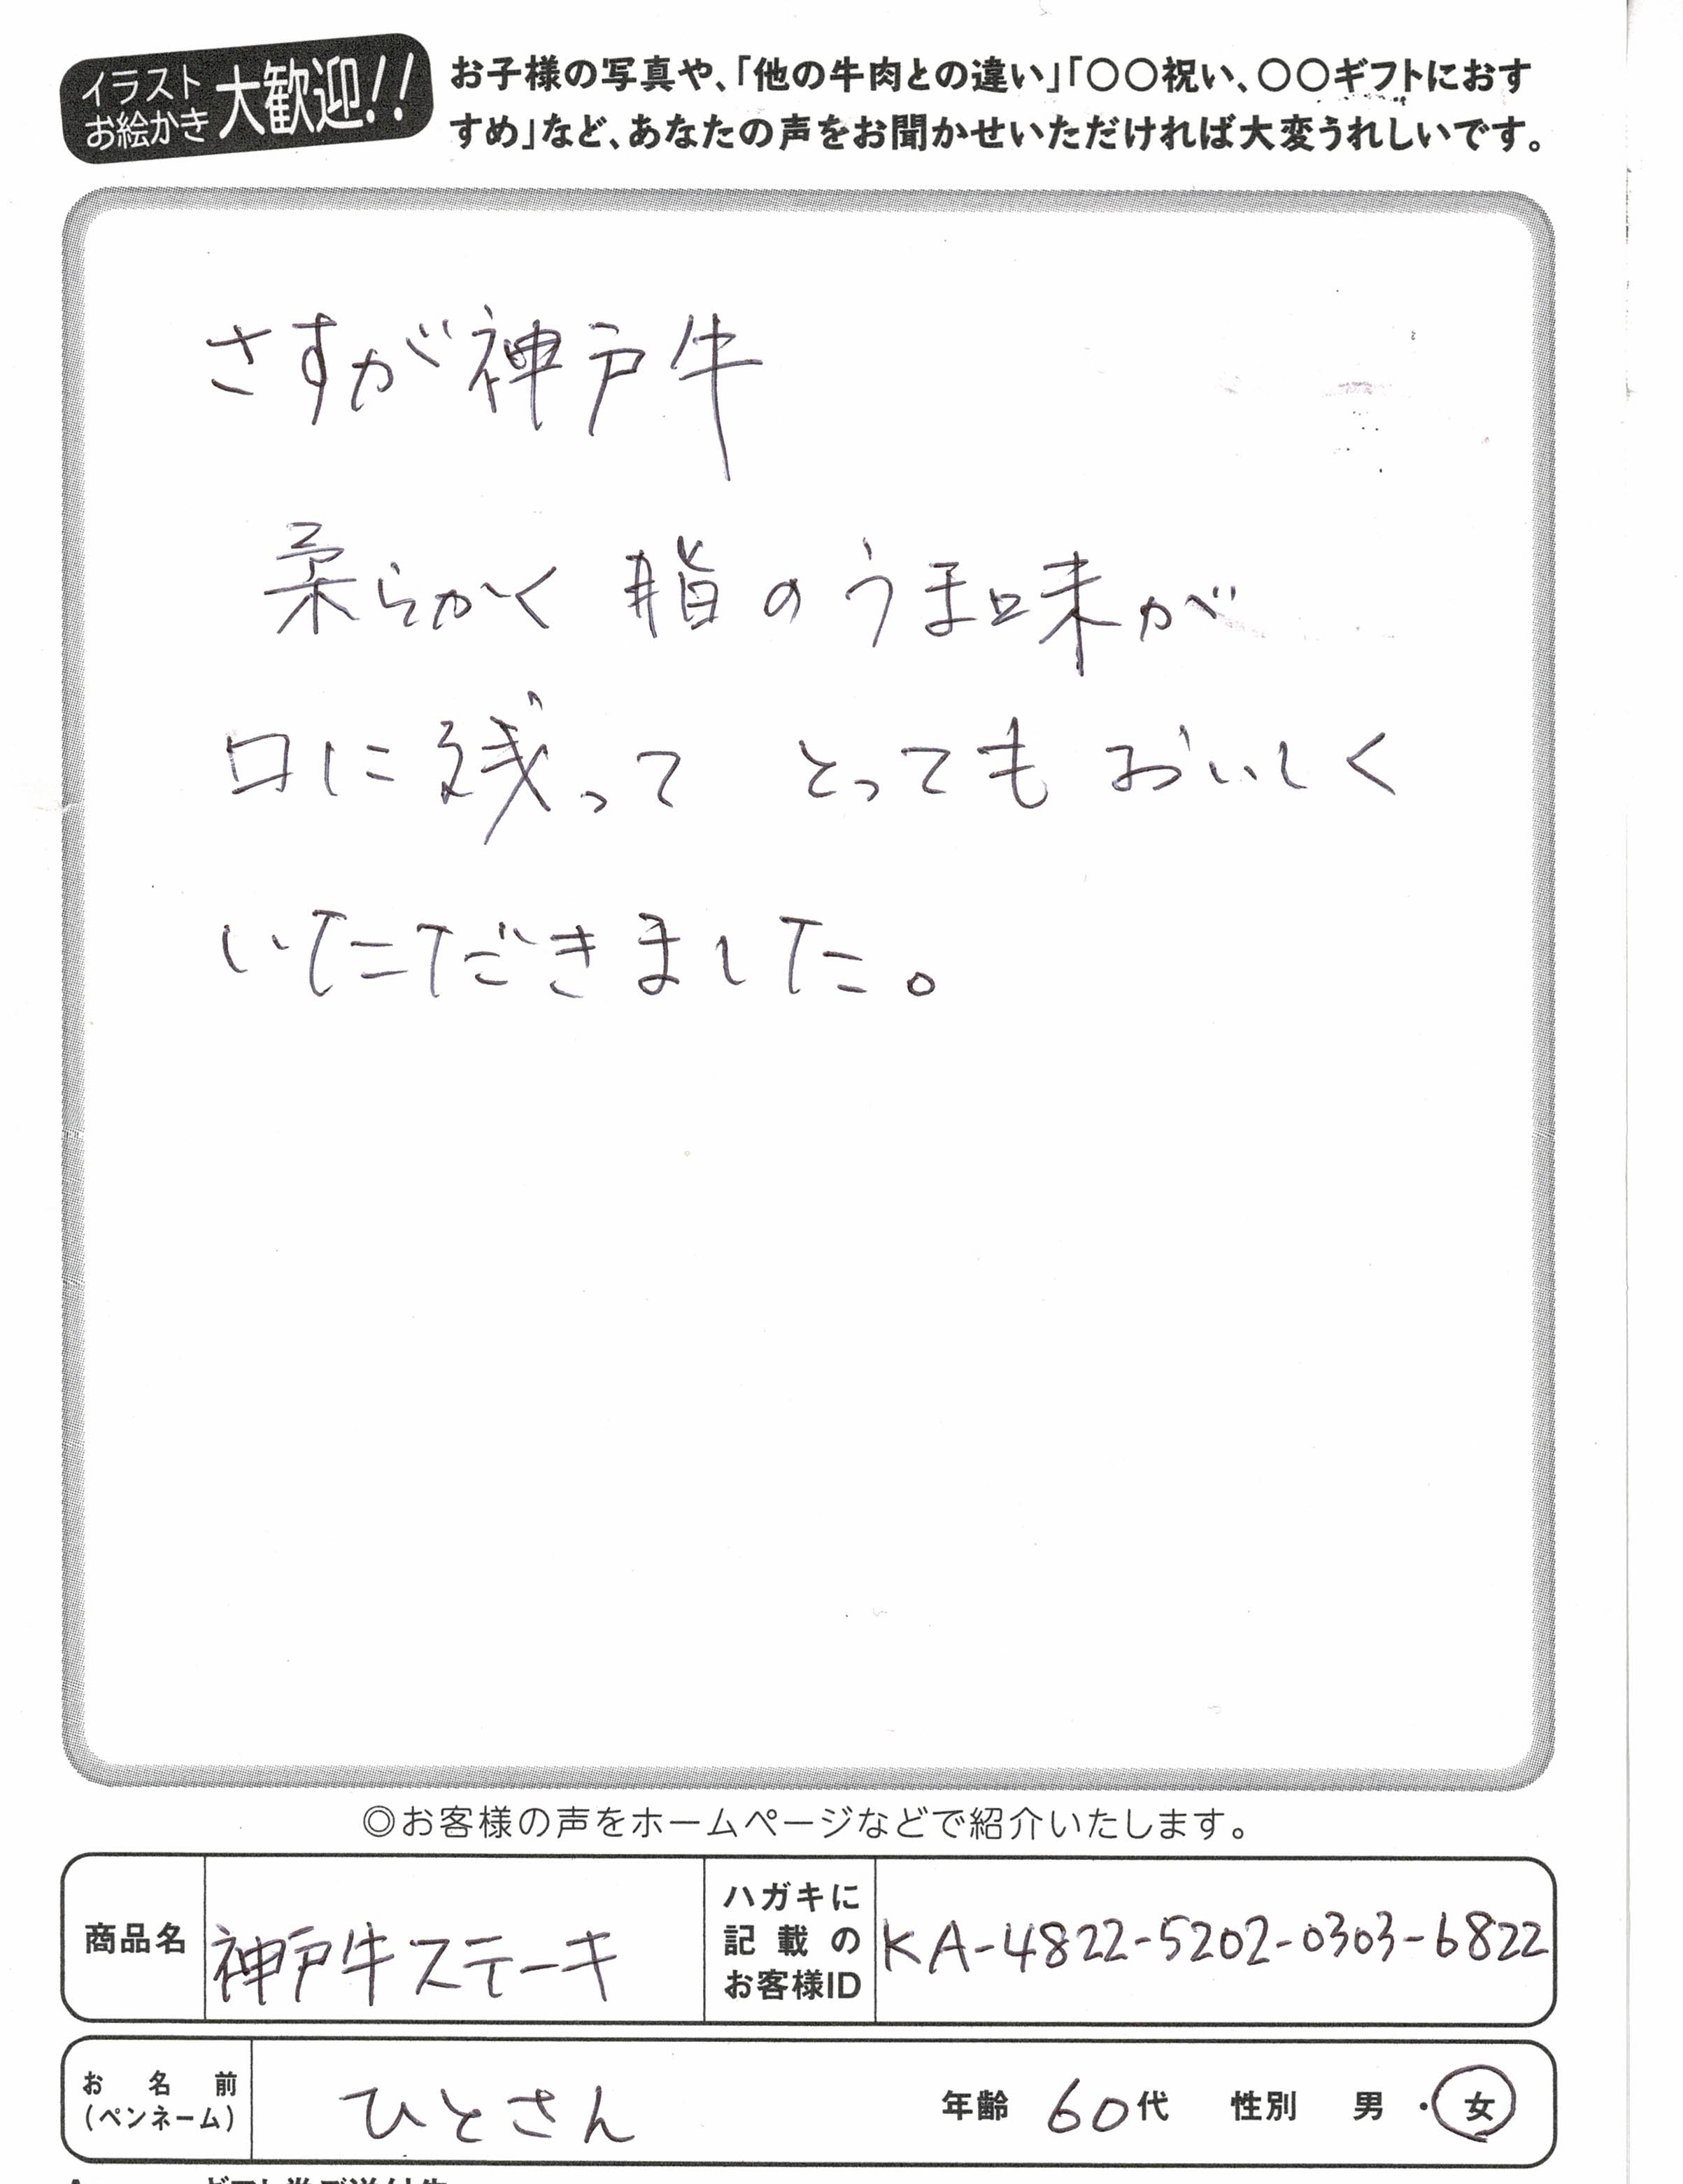 イラスト
お絵かき
大歓迎!!
お子様の写真や、「他の牛肉との違い」「〇〇祝い、〇〇ギフトにおす
すめ」など、あなたの声をお聞かせいただければ大変うれしいです。
さすが神戸牛
柔らかく 脂のうま味が
口に残って とってもおいしく
いただきました。
◎お客様の声をホームページなどで紹介いたします。
商品名
神戸牛ステーキ
ハガキに
記載の
お客様ID
KA-4822-5202-0303-6822
お名前
(ペンネーム)
ひとさん
年齢 60代 性別 男・女